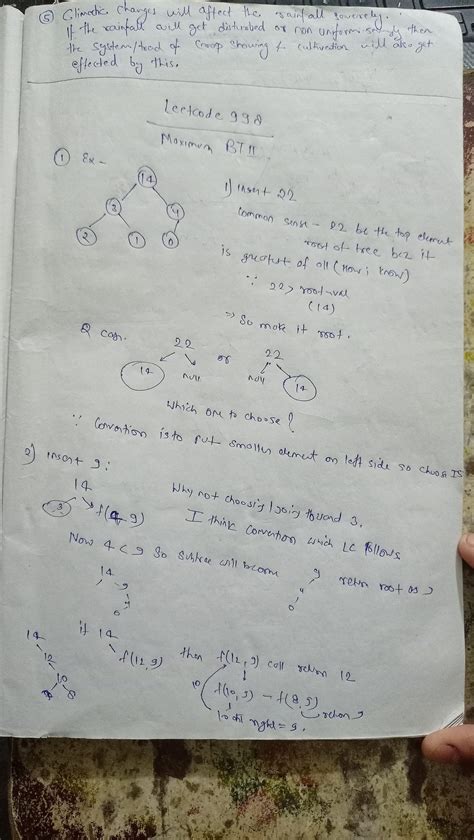 ⑤ Climatic changes will affect the rainfall severely.
If the rainfall will get distrubed or non uniform then
the system/trad of croop showing & cultivation will also get
effected by this.
Leetcode 998
Maximum BT II
① Ex -
14
3 4
2 1 0
1) insert 22
common sense - 22 be the top element
root of tree bcz it
is greatest of all (How i know)
∵ 22 > root→val
(14)
⇒ So make it root.
2 can.
22 or 22
14 null null 14
Which one to choose ?
∵ Convention is to put smaller element on left side so choose 1s
2) insert 9 :
14
3 f(4, 9)
Why not choosing / going toward 3.
I think convention which LC follows
Now 4 < 9 So subtree will become
14
9
4
0
9
4
0
return root as 9
if 14
f(12, 9)
then f(12, 9) call return 12
14
12
10
8
10
f(10, 9) - f(8, 9)
return 9
10 right = 9.